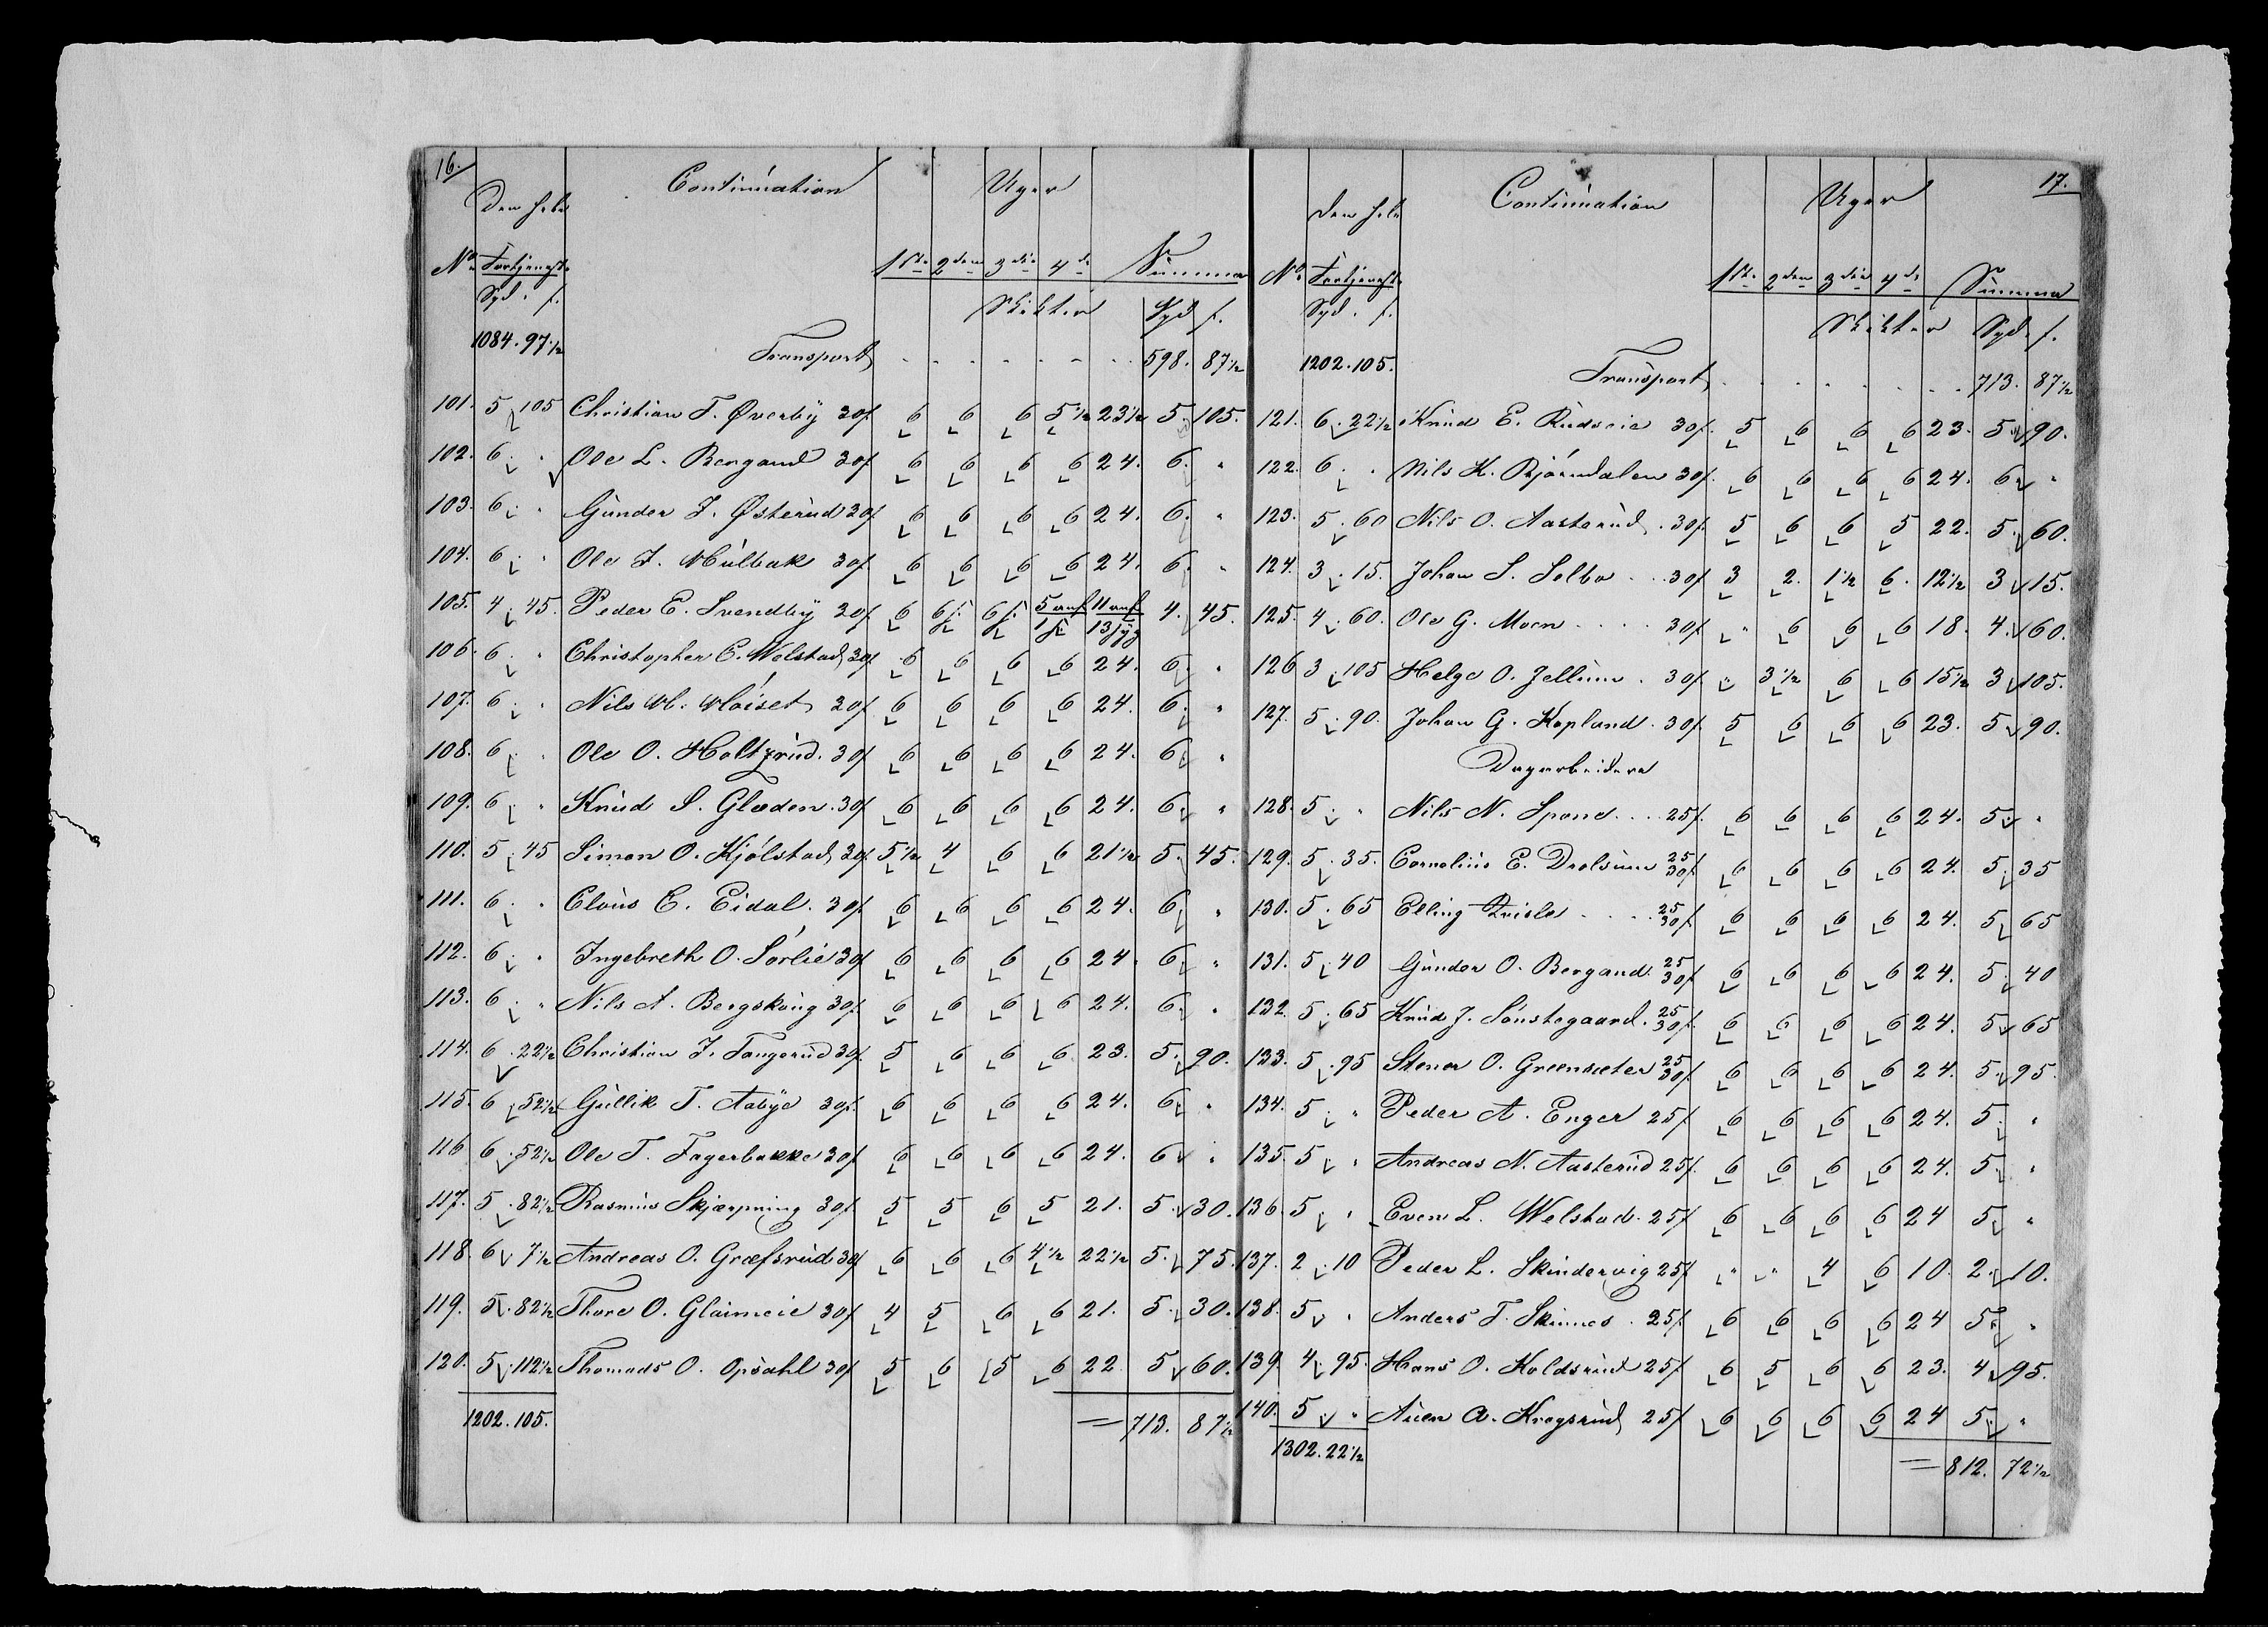 16.
Continuation
Uger
Den hele
No. Fortjenest.
1ste 2den 3die 4de Summa
Spd. s.
Skikter Spd s.
1084. 97½ Transport 598. 87½
101. 5 105 Christian T. Øverby 30s 6 6 6 5½ 23½ 5. 105.
102. 6. " Ole L. Bergand 30s 6 6 6 6 24. 6. "
103. 6. " Gunder J. Østerud 30s 6 6 6 6 24. 6. "
104. 6. " Ole J. Mulbak 30s 6 6 6 6 24. 6. "
105. 4. 45. Peder E. Svendby 30s 6 6 6 5 1 11 13 4. 45.
106. 6. " Christopher C. Welstad 30s 6 6 6 6 24. 6. "
107. 6. " Nils M. Moiset 30s 6 6 6 6 24. 6. "
108. 6. " Ole O. Holtfrud. 30s 6 6 6 6 24. 6. "
109. 6. " Knud S. Gloden. 30s 6 6 6 6 24. 6. "
110. 5. 45 Simon O. Kjølstad 30s 5½ 4 6 6 21½ 5. 45.
111. 6. " Claus C. Eidal. 30s 6 6 6 6 24. 6. "
112. 6. " Ingebreth O. Sørlie 30s 6 6 6 6 24. 6. "
113. 6. " Nils A. Bergskoug 30s 6 6 6 6 24. 6. "
114. 6. 22½ Christian J. Tangerud 30s 5 6 6 6 23. 5. 90.
115. 6 52½ Gullik T. Aabye 30s 6 6 6 6 24. 6. "
116 6. 52½ Ole T. Fagerbakke 30s 6 6 6 6 24. 6 "
117. 5. 82½ Rasmus Skjærpning 30s 5 5 6 5 21. 5. 30.
118. 6 7½ Andreas O. Græfsrud 30s 6 6 6 4½ 22½ 5. 75.
119. 5. 82½ Thore O. Gloimeie 30s 4 5 6 6 21. 5. 30.
120. 5. 112½ Thomas O. Opsahl 30s 5 6 5 6 22. 5 60.
1202. 105. = 713. 87½
17.
Continuation
Uger
Den hele
No. Fortjenest.
1ste 2den 3die 4de Summa
Spd. s.
Skikter Spd. s.
1202. 105. Transport 713. 87½
121. 6. 22½ Knud E. Rudseie 30s. 5 6 6 6 23. 5. 90.
122. 6. " Nils K. Bjørndalen 30s. 6 6 6 6 24. 6. "
123. 5. 60 Nils O. Aasterud. 30s. 5 6 6 5 22. 5. 60.
124. 3. 15. Johan S. Solbo 30s 3 2. 1½ 6. 12½ 3 15.
125. 4. 60. Ole G. Moen 30s " 6 6 6 18. 4. 60.
126 3 105 Helge O. Jellum. 30s " 3½ 6 6 15½ 3 105.
127. 5. 90. Johan G. Kopland. 30s. 5 6 6 6 23. 5 90.
Dagarbeidere
128. 5. " Nils N. Spone. 25s. 6 6 6 6 24. 5. "
129. 5. 35. Cornelius E. Drolsum 25 30s 6 6 6 6 24. 5. 35
130. 5. 65 Elling Kvisle 25 30s 6 6 6 6 24. 5 65
131. 5. 40 Gunder O. Bergand. 25 30s 6 6 6 6 24. 5. 40
132. 5. 65 Knud J. Sønstegaard. 25 30s. 6 6 6 6 24. 5 65
133. 5. 95 Stener O. Greensæter 25 30s 6 6 6 6 24. 5. 95.
134. 5. " Peder A. Enger 25s 6 6 6 6 24. 5. "
135. 5. " Andreas N. Aasterud 25s. 6 6 6 6 24. 5. "
136. 5. " Even L. Welstad. 25s 6 6 6 6 24 5. "
137. 2. 10 Peder L. Skindervig 25s " " 4 6 10. 2. 10.
138. 5. " Anders T. Skinnes. 25s 6 6 6 6 24 5. "
139. 4. 95. Hans O. Koldsrud 25s 6 5 6 6 23. 4. 95.
140. 5. " Auen A. Kregsrud 25s 6 6 6 6 24 5. "
1302. 22½ = 812. 72½